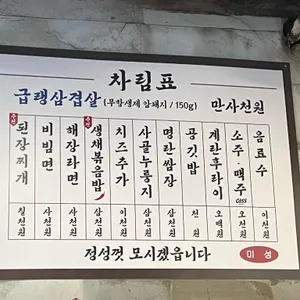 차림표
급랭삼겹살 (무항생제 암돼지 / 150g) 만사천원
추천 된장찌개 칠천원
비빔면 사천원
해장라면 사천원
추천 생채볶음밥 삼천원
치즈추가 이천원
사골누룽지 삼천원
명란쌈장 삼천원
공깃밥 천원
계란후라이 오백원
소주·맥주 CASS 오천원
음료수 이천원
정성껏 모시겠읍니다
미성